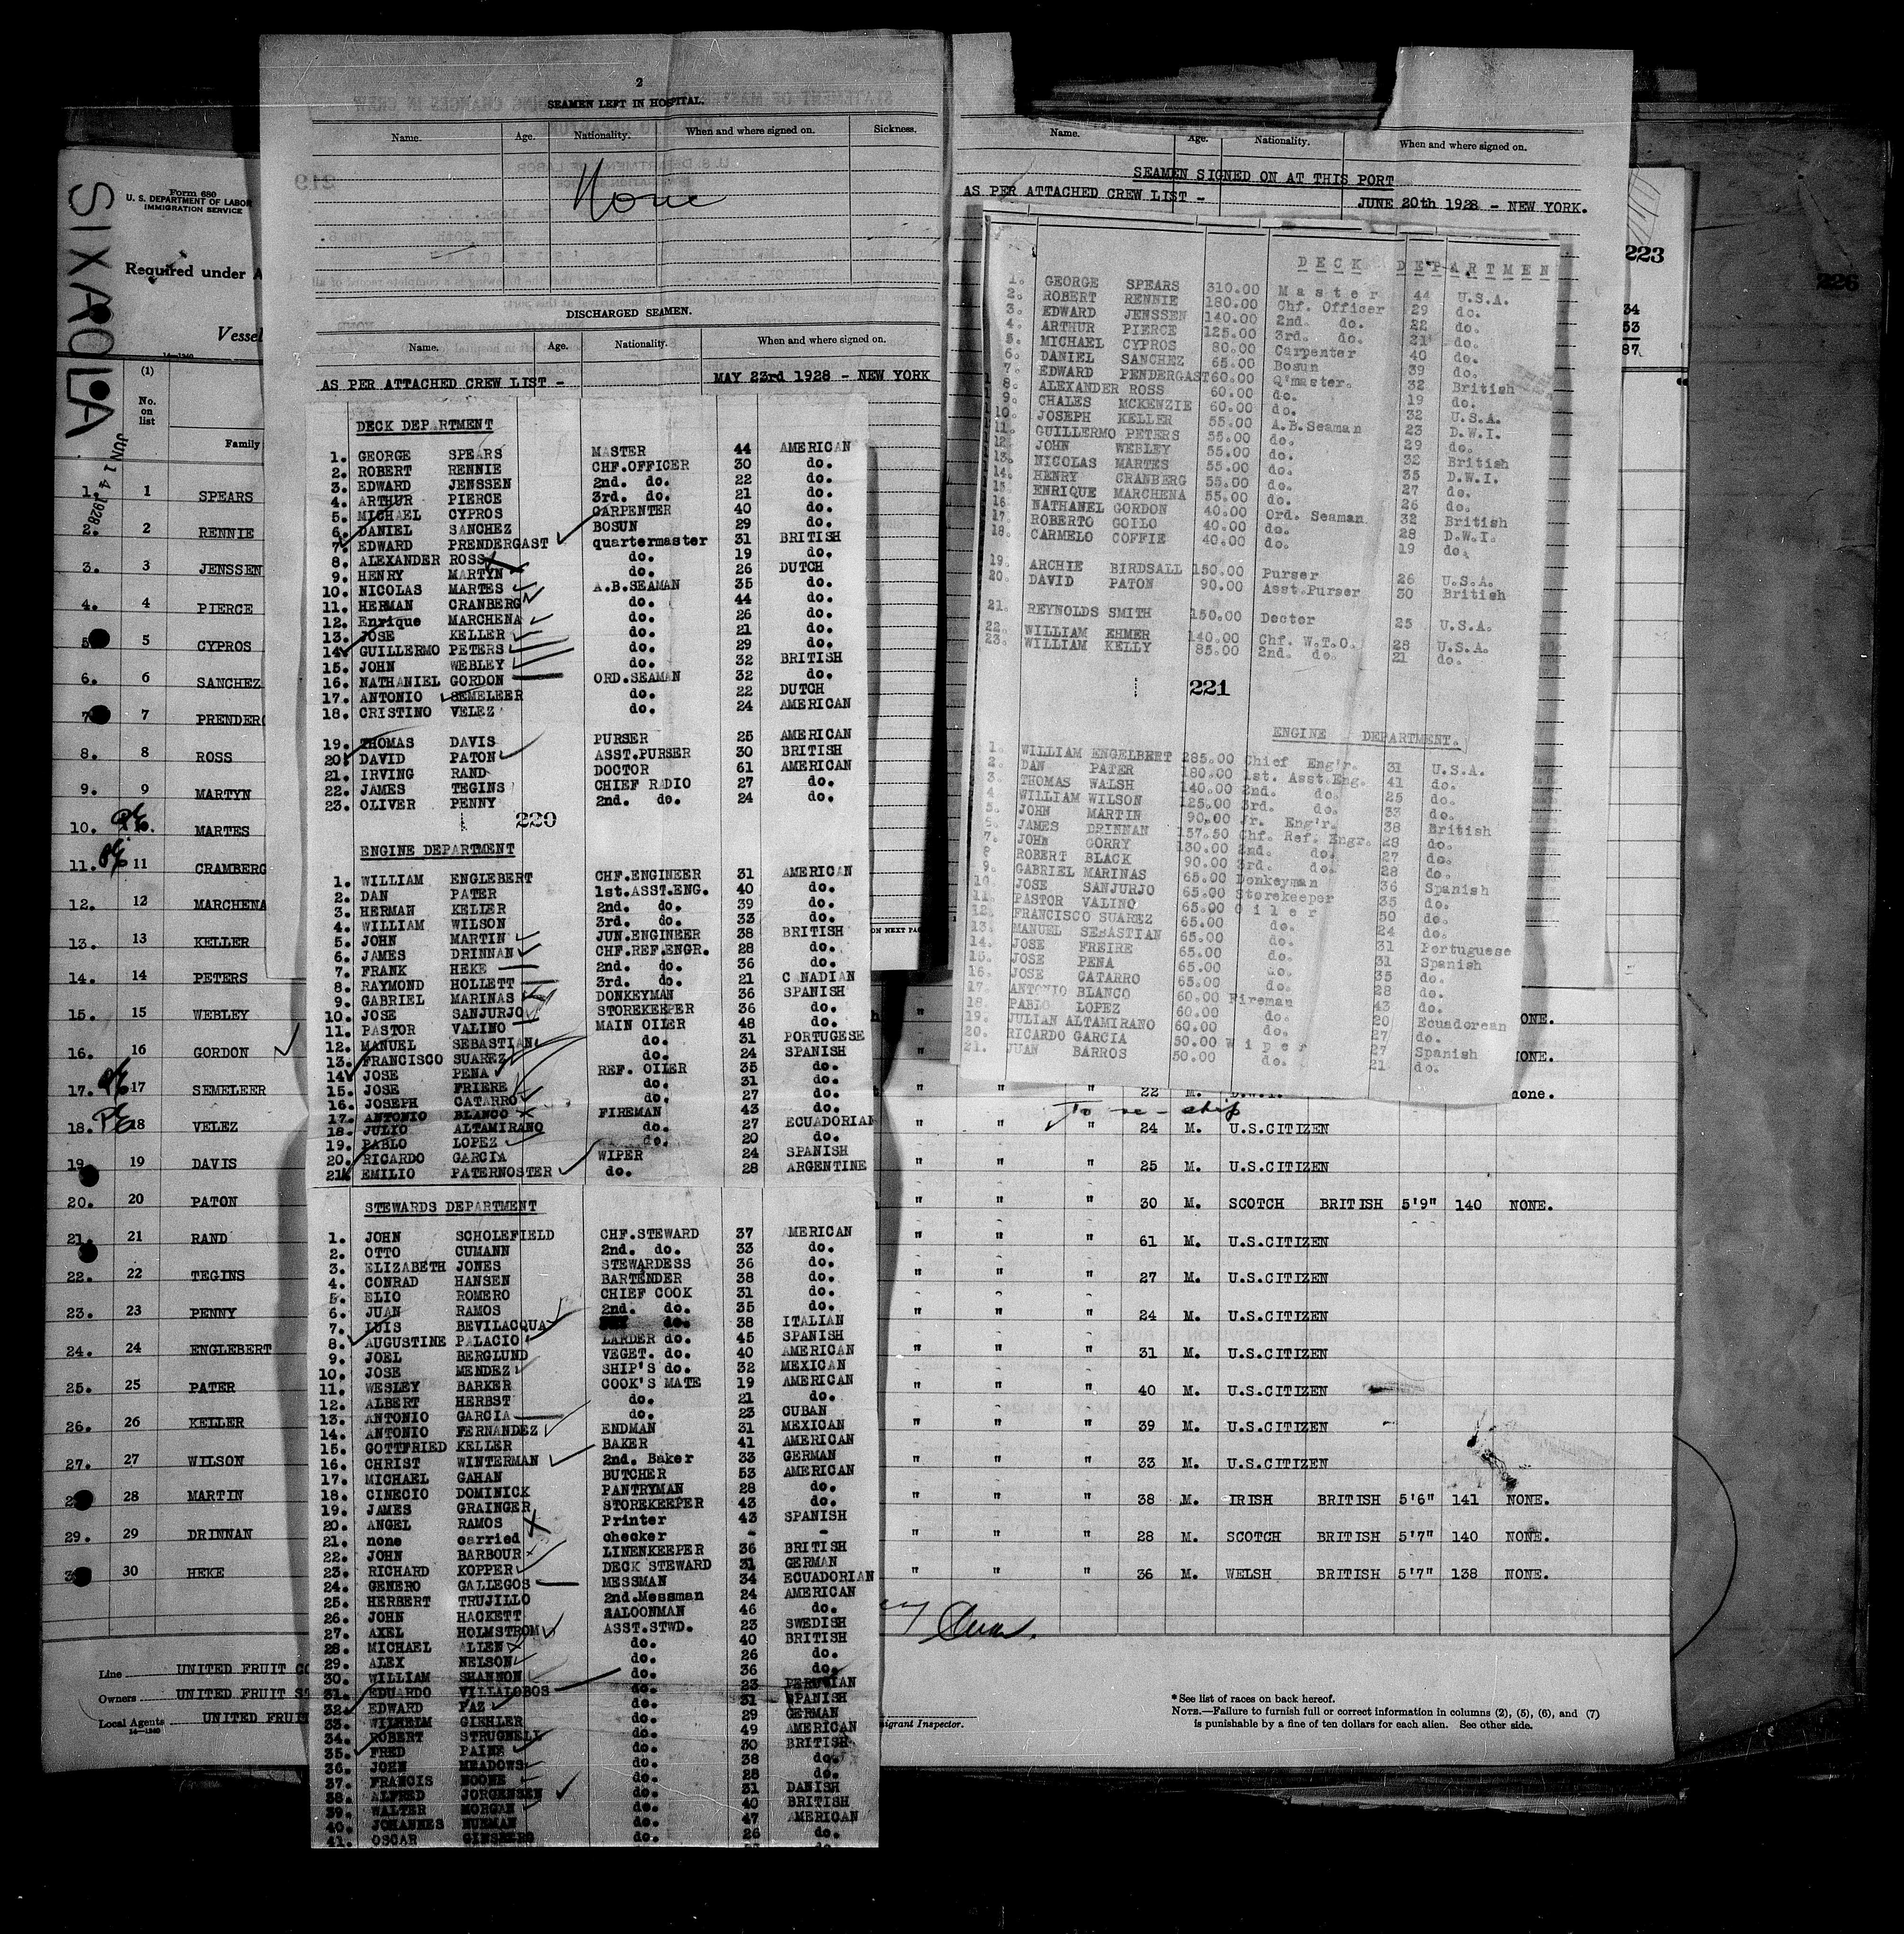 SIXAOLA
JUN 14 1928
Form 680
U. S. DEPARTMENT OF LABOR
IMMIGRATION SERVICE
Required under A
Vessel
14—1240
(1)
No. on list
Family
1. 1 SPEARS
2. 2 RENNIE
3. 3 JENSSEN
4. 4 PIERCE
5 5 CYPROS
6. 6 SANCHEZ
7 7 PRENDERG
8. 8 ROSS
9. 9 MARTYN
10. MARTES
11. 11 CRAMBERG
12. 12 MARCHENA
13. 13 KELLER
14. 14 PETERS
15. 15 WEBLEY
16. 16 GORDON
17. 17 SEMELEER
18. 18 VELEZ
19 19 DAVIS
20. 20 PATON
21. 21 RAND
22. 22 TEGINS
23. 23 PENNY
24. 24 ENGLEBERT
25. 25 PATER
26. 26 KELLER
27. 27 WILSON
2 28 MARTIN
29. 29 DRINNAN
3 30 HEKE
Line UNITED FRUIT CO
Owners UNITED FRUIT ST
Local Agents UNITED FRUI
14—1240
2
SEAMEN LEFT IN HOSPITAL.
Name. Age. Nationality. When and where signed on. Sickness.
None
DISCHARGED SEAMEN.
Name. Age. Nationality. When and where signed on.
AS PER ATTACHED CREW LIST - MAY 23rd 1928 - NEW YORK
DECK DEPARTMENT
1. GEORGE SPEARS MASTER 44 AMERICAN
2. ROBERT RENNIE CHF.OFFICER 30 do.
3. EDWARD JENSSEN 2nd. do. 22 do.
4. ARTHUR PIERCE 3rd. do. 21 do.
5. MICHAEL CYPROS CARPENTER 40 do.
6. DANIEL SANCHEZ BOSUN 29 do.
7. EDWARD PRENDERGAST quartermaster 31 BRITISH
8. ALEXANDER ROSS do. 19 do.
9. HENRY MARTYN do. 26 DUTCH
10. NICOLAS MARTES A.B.SEAMAN 35 do.
11. HERMAN CRANBERG do. 44 do.
12. Enrique MARCHENA do. 26 do.
13. JOSE KELLER do. 21 do.
14. GUILLERMO PETERS do. 29 do.
15. JOHN WEBLEY do. 32 BRITISH
16. NATHANIEL GORDON ORD.SEAMAN 32 do.
17. ANTONIO SEMELEER do. 22 DUTCH
18. CRISTINO VELEZ do. 24 AMERICAN
19. THOMAS DAVIS PURSER 25 AMERICAN
20. DAVID PATON ASST.PURSER 30 BRITISH
21. IRVING RAND DOCTOR 61 AMERICAN
22. JAMES TEGINS CHIEF RADIO 27 do.
23. OLIVER PENNY 2nd. do. 24 do.
220
ENGINE DEPARTMENT
1. WILLIAM ENGLEBERT CHF.ENGINEER 31 AMERICAN
2. DAN PATER 1st.ASST.ENG. 40 do.
3. HERMAN KELLER 2nd. do. 39 do.
4. WILLIAM WILSON 3rd. do. 33 do.
5. JOHN MARTIN JUN.ENGINEER 38 BRITISH
6. JAMES DRINNAN CHF.REF.ENGR. 28 do.
7. FRANK HEKE 2nd. do. 36 do.
8. RAYMOND HOLLETT 3rd. do. 21 CANADIAN
9. GABRIEL MARINAS DONKEYMAN 36 SPANISH
10. JOSE SANJURJO STOREKEEPER 36 do.
11. PASTOR VALINO MAIN OILER 48 do.
12. MANUEL SEBASTIAN do. 31 PORTUGESE
13. FRANCISCO SUAREZ do. 24 SPANISH
14. JOSE PENA REF. OILER 35 do.
15. JOSE FRIERE do. 31 do.
16. JOSEPH CATARRO do. 27 do.
17. ANTONIO BLANCO FIREMAN 43 do.
18. JULIO ALTAMIRANO do. 27 ECUADORIAN
19. PABLO LOPEZ do. 20 do.
20. RICARDO GARCIA WIPER 24 SPANISH
21. EMILIO PATERNOSTER do. 28 ARGENTINE
STEWARDS DEPARTMENT
1. JOHN SCHOLEFIELD CHF.STEWARD 37 AMERICAN
2. OTTO CUMANN 2nd. do. 33 do.
3. ELIZABETH JONES STEWARDESS 36 do.
4. CONRAD HANSEN BARTENDER 38 do.
5. ELIO ROMERO CHIEF COOK 31 do.
6. JUAN RAMOS 2nd. do. 35 do.
7. LUIS BEVILACQUA do. 38 ITALIAN
8. AUGUSTINE PALACIO LARDER do. 45 SPANISH
9. JOEL BERGLUND VEGET. do. 40 AMERICAN
10. JOSE MENDEZ SHIP'S do. 32 MEXICAN
11. WESLEY BARKER COOK'S MATE 19 AMERICAN
12. ALBERT HERBST do. 21 do.
13. ANTONIO GARCIA do. 23 CUBAN
14. ANTONIO FERNANDEZ ENDMAN 31 MEXICAN
15. GOTTFRIED KELLER BAKER 41 AMERICAN
16. CHRIST WINTERMAN 2nd. Baker 33 GERMAN
17. MICHAEL GAHAN BUTCHER 53 AMERICAN
18. CINECIO DOMINICK PANTRYMAN 28 do.
19. JAMES GRAINGER STOREKEEPER 43 do.
20. ANGEL RAMOS Printer 43 SPANISH
21. none carried checker - -
22. JOHN BARBOUR LINENKEEPER 36 BRITISH
23. RICHARD KOPPER DECK STEWARD 31 GERMAN
24. GENERO GALLEGOS MESSMAN 34 ECUADORIAN
25. HERBERT TRUJILLO 2nd.Messman 24 AMERICAN
26. JOHN HACKETT SALOONMAN 46 do.
27. AXEL HOLMSTROM ASST.STWD. 23 SWEDISH
28. MICHAEL ALLEN do. 40 BRITISH
29. ALEX NELSON do. 26 do.
30. WILLIAM SHANNON do. 36 do.
31. EDUARDO VILLALOBOS do. 23 PERUVIAN
32. EDWARD PAZ do. 31 SPANISH
33. WILHELM GIEHLER do. 29 GERMAN
34. ROBERT STRUGNELL do. 49 AMERICAN
35. FRED PAINE do. 30 BRITISH
36. JOHN MEADOWS do. 38 do.
37. FRANCIS NOONE do. 28 do.
38. ALFRED JORGENSEN do. 31 DANISH
39. WALTER MORGAN do. 40 BRITISH
40. JOHANNES NUEMAN do. 47 AMERICAN
41. OSCAR GINSBERG do. 26 do.
Name. Age. Nationality. When and where signed on.
SEAMEN SIGNED ON AT THIS PORT
AS PER ATTACHED CREW LIST - JUNE 20th 1928 - NEW YORK.
DECK DEPARTMEN
1. GEORGE SPEARS 310.00 Master 44 U.S.A.
2. ROBERT RENNIE 180.00 Chf. Officer 29 do.
3. EDWARD JENSSEN 140.00 2nd. do. 22 do.
4. ARTHUR PIERCE 125.00 3rd. do. 21 do.
5. MICHAEL CYPROS 80.00 Carpenter 40 do.
6. DANIEL SANCHEZ 65.00 Bosun 39 do.
7. EDWARD PENDERGAST 60.00 Q'master. 32 British
8. ALEXANDER ROSS 60.00 do. 19 do.
9. CHALES MCKENZIE 60.00 do. 32 U.S.A.
10. JOSEPH KELLER 55.00 A.B.Seaman 23 D.W.I.
11. GUILLERMO PETERS 55.00 do. 29 do.
12. JOHN WEBLEY 55.00 do. 32 British
13. NICOLAS MARTES 55.00 do. 35 D.W.I.
14. HENRY CRANBERG 55.00 do. 27 do.
15. ENRIQUE MARCHENA 55.00 do. 26 do.
16. NATHANEL GORDON 40.00 Ord. Seaman 32 British
17. ROBERTO GOILO 40.00 do. 28 D.W.I.
18. CARMELO COFFIE 40.00 do. 19 do.
19. ARCHIE BIRDSALL 150.00 Purser 26 U.S.A.
20. DAVID PATON 90.00 Asst.Purser 30 British
21. REYNOLDS SMITH 150.00 Doctor 25 U.S.A.
22. WILLIAM EHMER 140.00 Chf. W.T.O. 28 U.S.A.
23. WILLIAM KELLY 85.00 2nd. do. 21 do.
221
ENGINE DEPARTMENT.
1. WILLIAM ENGELBERT 285.00 Chief Eng'r. 31 U.S.A.
2. DAN PATER 180.00 1st. Asst.Eng. 41 do.
3. THOMAS WALSH 140.00 2nd. do. 25 do.
4 WILLIAM WILSON 125.00 3rd. do. 33 do.
5. JOHN MARTIN 90.00 Jr. Eng'r. 38 British
6. JAMES DRINNAN 157.50 Chf. Ref. Engr. 28 do.
7. JOHN GORRY 130.00 2nd. do. 27 do.
8 ROBERT BLACK 90.00 3rd. do. 28 do.
9. GABRIEL MARINAS 65.00 Donkeyman 36 Spanish
10. JOSE SANJURJO 65.00 Storekeeper 35 do.
11. PASTOR VALINO 65.00 Oiler 50 do.
12. FRANCISCO SUAREZ 65.00 do. 24 do.
13. MANUEL SEBASTIAN 65.00 do. 31 Portuguese
14. JOSE FREIRE 65.00 do. 31 Spanish
15. JOSE PENA 65.00 do. 35 do.
16. JOSE CATARRO 65.00 do. 28 do.
17. ANTONIO BLANCO 60.00 Fireman 43 do.
18. PABLO LOPEZ 60.00 do. 20 Ecuadorean
19. JULIAN ALTAMIRANO 60.00 do. 27 do.
20. RICARDO GARCIA 50.00 Wiper 27 Spanish
21. JUAN BARROS 50.00 do. 21 do.
223
226
34
53
87
ON NEXT PAG
" ONE.
" NONE.
" " " 22 M. D.W.I. none.
To re-ship
" " " 24 M. U.S.CITIZEN
" " " 25 M. U.S.CITIZEN
" " " 30 M. SCOTCH BRITISH 5'9" 140 NONE.
" " " 61 M. U.S.CITIZEN
" " " 27 M. U.S.CITIZEN
" " " 24 M. U.S.CITIZEN
" " " 31 M. U.S.CITIZEN
" " " 40 M. U.S.CITIZEN
" " " 39 M. U.S.CITIZEN
" " " 33 M. U.S.CITIZEN
" " " 38 M. IRISH BRITISH 5'6" 141 NONE.
" " " 28 M. SCOTCH BRITISH 5'7" 140 NONE.
" " " 36 M. WELSH BRITISH 5'7" 138 NONE.
migrant Inspector.
* See list of races on back hereof.
NOTE.—Failure to furnish full or correct information in columns (2), (5), (6), and (7)
is punishable by a fine of ten dollars for each alien. See other side.